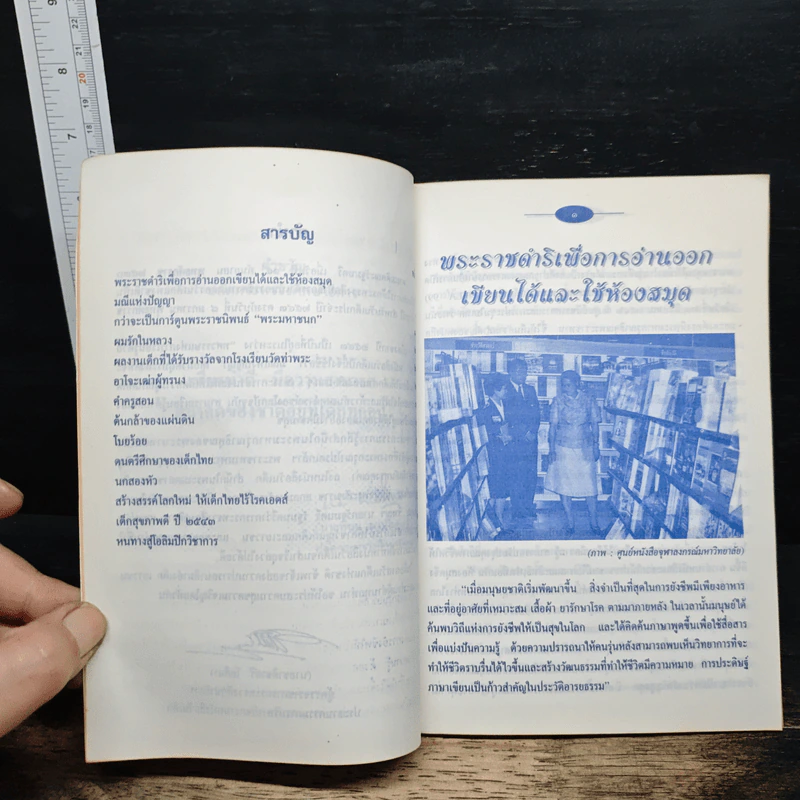 สารบัญ
พระราชดำริเพื่อการอ่านออกเขียนได้และใช้ห้องสมุด
มณีแห่งปัญญา
กว่าจะเป็นการ์ตูนพระราชนิพนธ์ "พระมหาชนก"
ผมรักในหลวง
ผลงานเด็กที่ได้รับรางวัลจากโรงเรียนวัดท่าพระ
อาโจะเฒ่าผู้ทรนง
คำครูสอน
ต้นกล้าของแผ่นดิน
โบยร้อย
ดนตรีศึกษาของเด็กไทย
นกสองหัว
สร้างสรรค์โลกใหม่ ให้เด็กไทยไร้โรคเอดส์
เด็กสุขภาพดี ปี ๒๕๔๓
หนทางสู่โอลิมปิกวิชาการ
๑
พระราชดำริเพื่อการอ่านออก
เขียนได้และใช้ห้องสมุด
(ภาพ : ศูนย์หนังสือจุฬาลงกรณ์มหาวิทยาลัย)
"เมื่อมนุษยชาติเริ่มพัฒนาขึ้น สิ่งจำเป็นที่สุดในการยังชีพมีเพียงอาหาร
และที่อยู่อาศัยที่เหมาะสม เสื้อผ้า ยารักษาโรค ตามมาภายหลัง ในเวลานั้นมนุษย์ได้
ค้นพบวิถีแห่งการยังชีพให้เป็นสุขในโลก และได้คิดค้นภาษาพูดขึ้นเพื่อใช้สื่อสาร
เพื่อแบ่งปันความรู้ ด้วยความปรารถนาให้คนรุ่นหลังสามารถพบเห็นวิทยาการที่จะ
ทำให้ชีวิตราบรื่นได้ไวขึ้นและสร้างวัฒนธรรมที่ทำให้ชีวิตมีความหมาย การประดิษฐ์
ภาษาเขียนเป็นก้าวสำคัญในประวัติอารยธรรม"
8
7
22
21
20
19
18
17